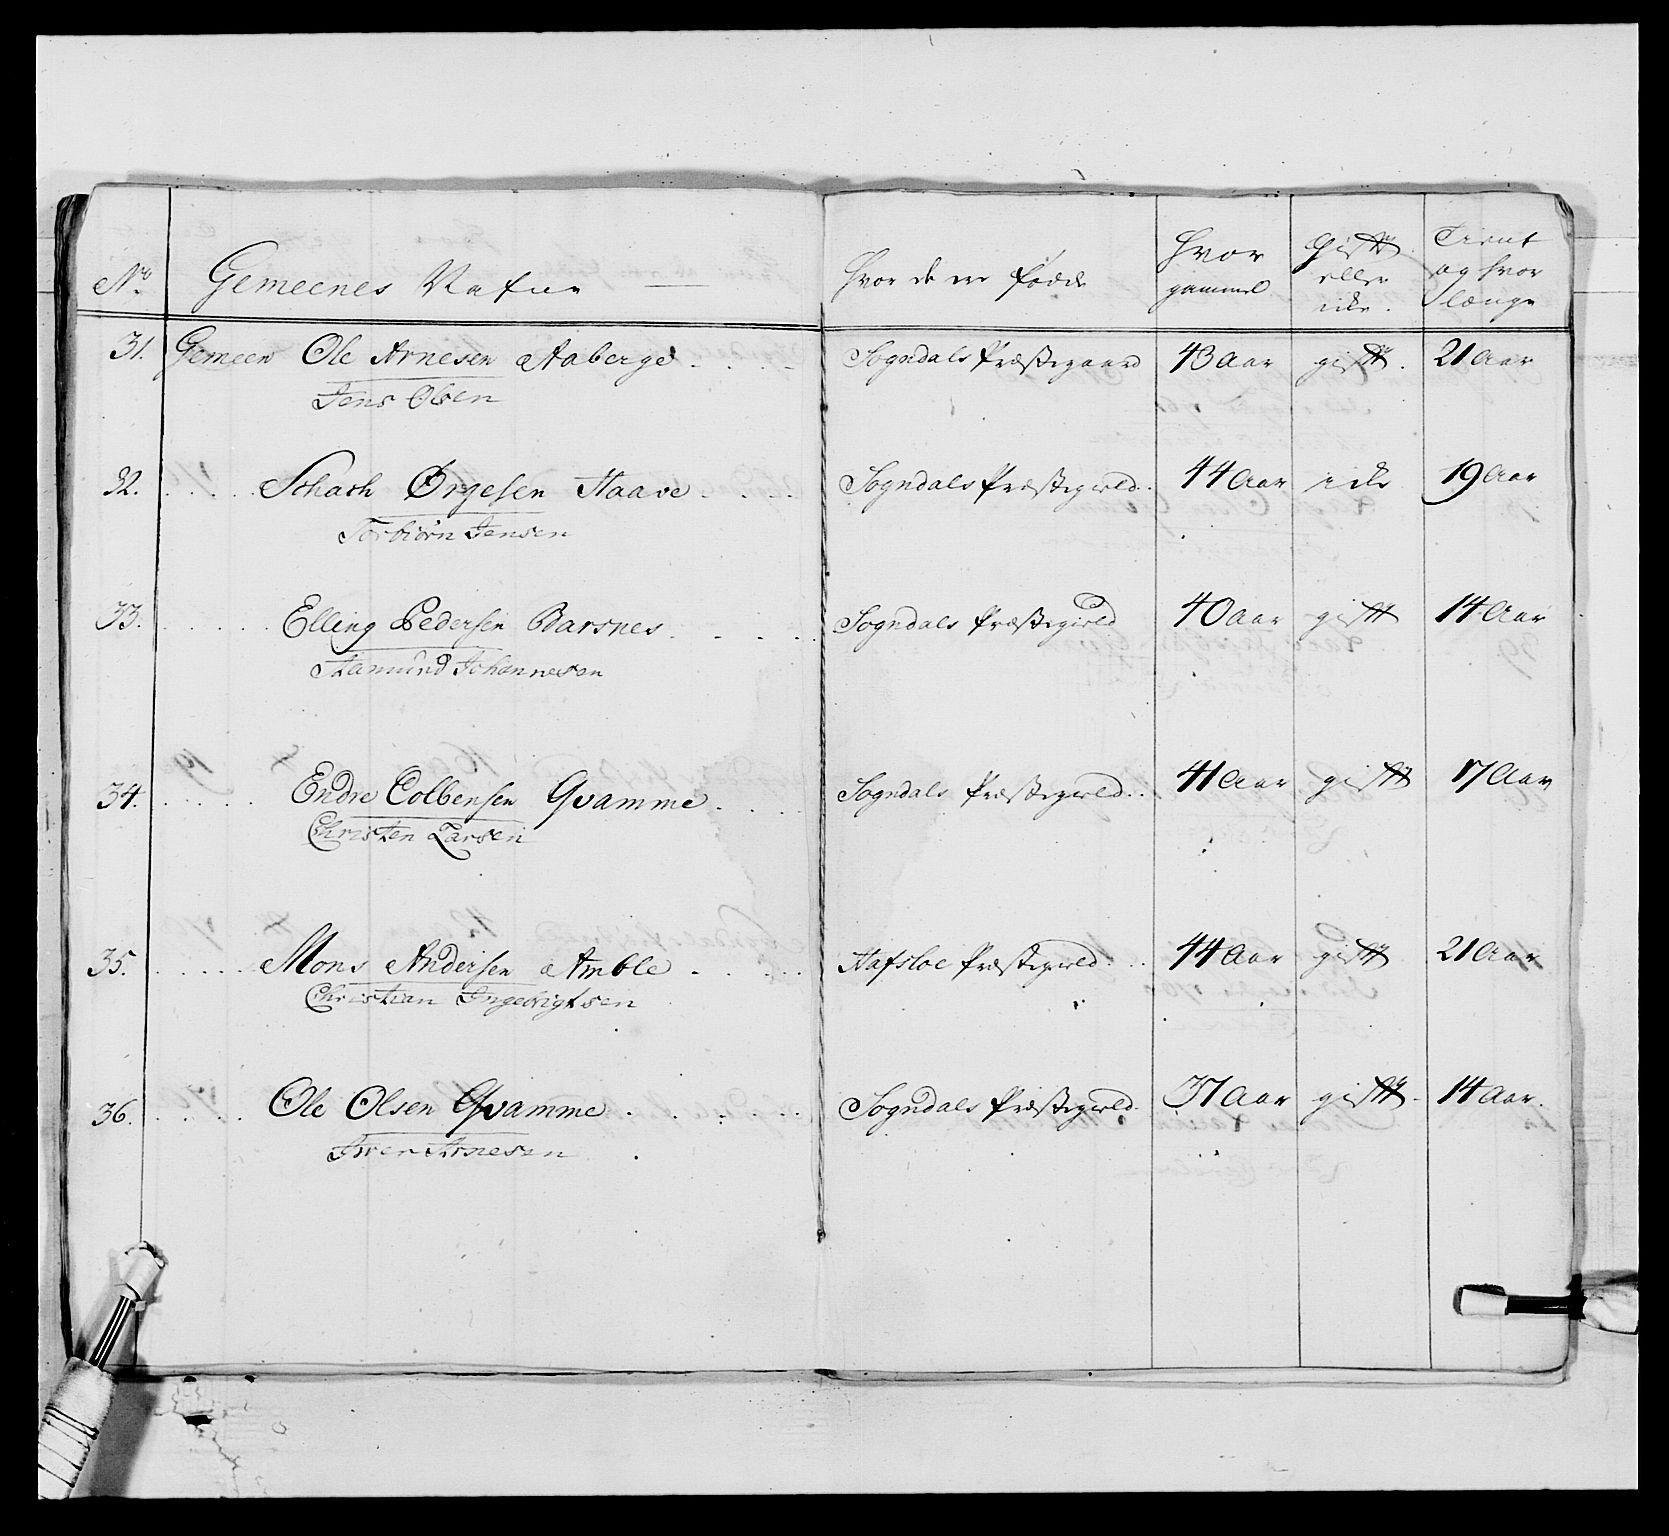 No. Gemeenes Nafne Hvor de ere fødde Hvor gammel Gift eller icke. Tient og hvor længe
31. Gemeen Ole Arnesen Aaberge Sogndals Præstegaard 43 Aar gift. 21 Aar
Jens Olsen
32. Schach Ørgesen Haave Sogndals Præstegield. 44 Aar icke 19 Aar
Torbiørn Jensen
33. Elling Pedersen Barsnes Sogndals Præstegield 40 Aar gift 14 Aar
Aamund Johannesen
34. Endre Colbensen Qvamme Sogndals Præstegield 41 Aar gift 17 Aar
Christen Larsen
35. Mons Andersen Amble Hafsloe Præstegield 44 Aar gift 21 Aar
Christian Ingebrigtsen
36. Ole Olsen Qvamme Sogndals Præstegield 37 Aar gift 14 Aar.
Iver Arnesen